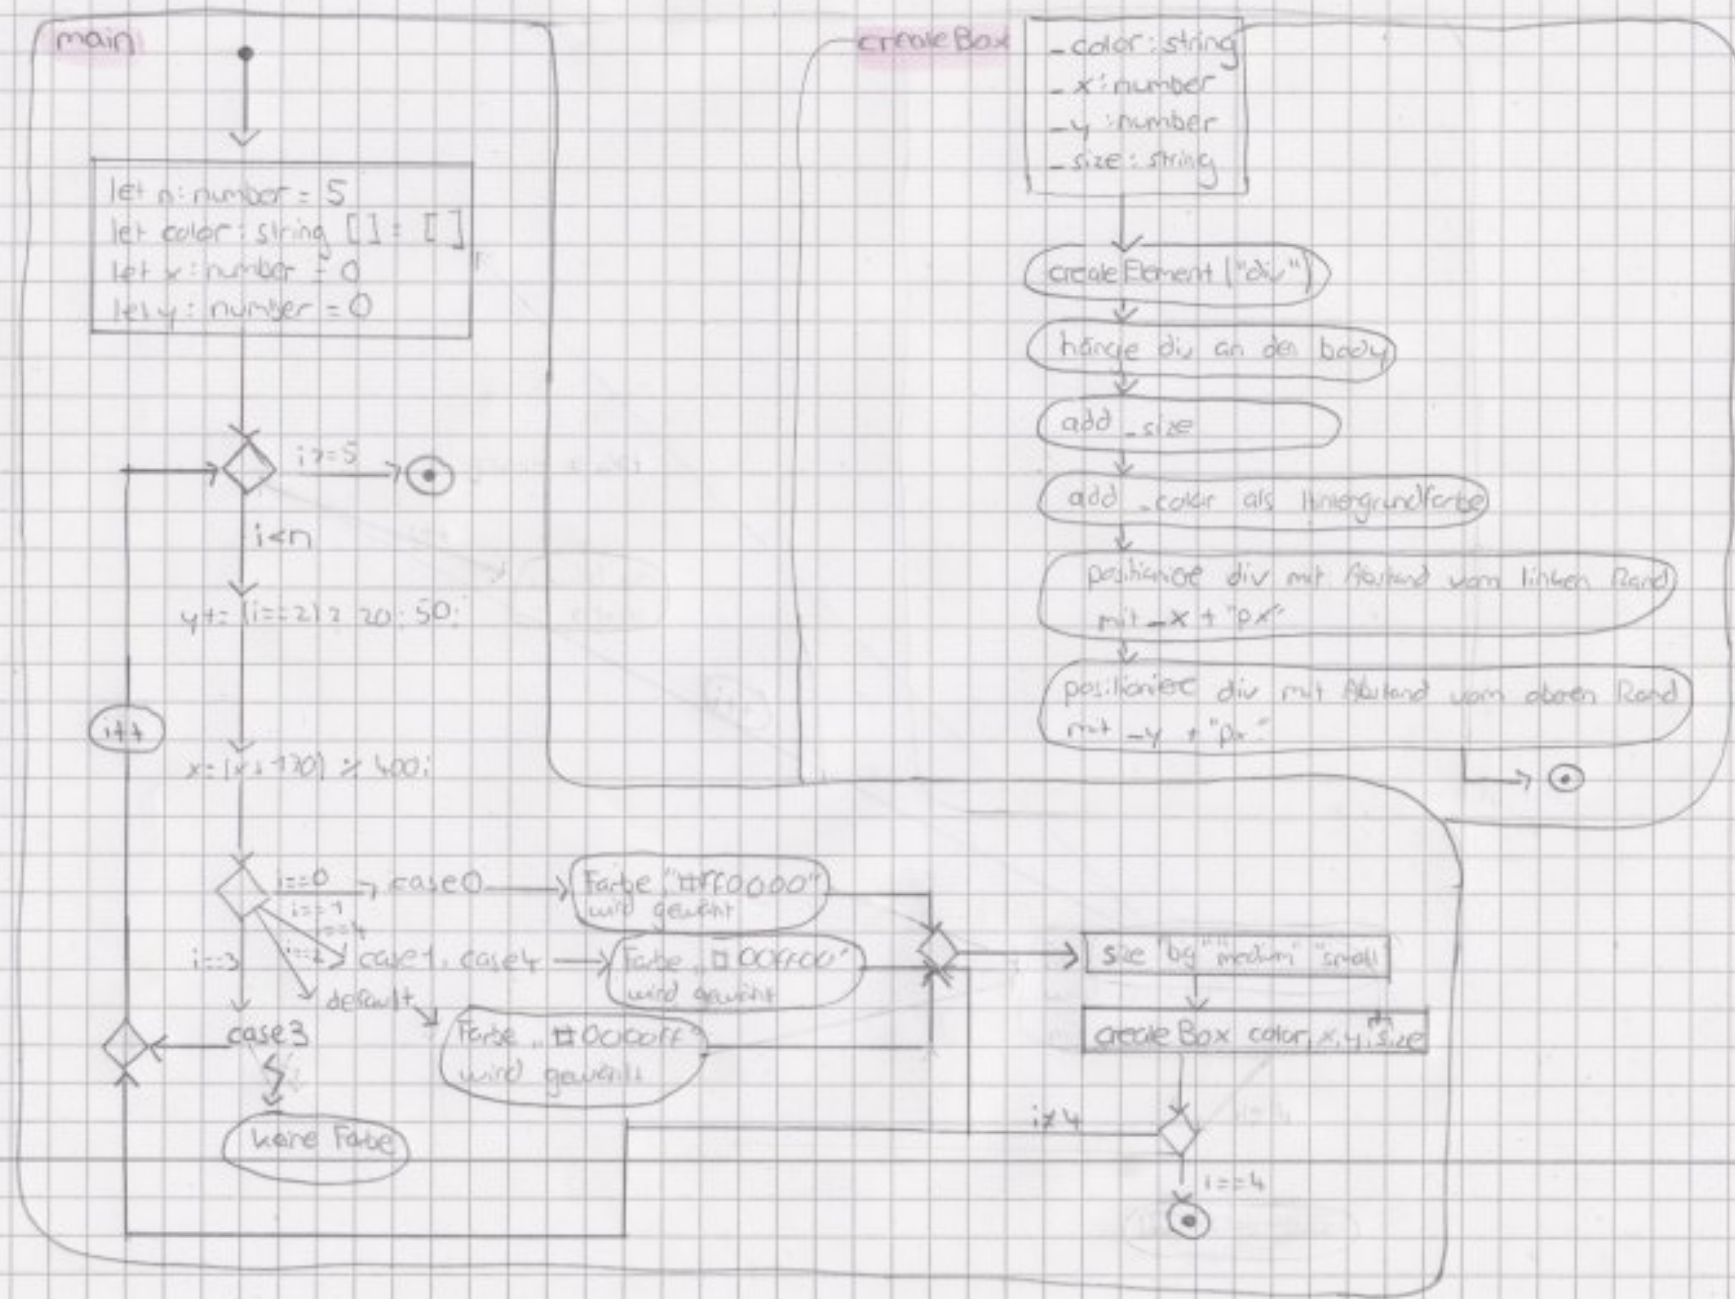 main
let n: number = 5
let color: string [] = []
let x: number = 0
let y: number = 0
i>=5
i<n
y+= (i==2)? 20 : 50;
i++
x=(x+130) % 400;
i==0
case0
Farbe "#ff0000"
wird gewählt
i==1
i==4
i==2
case1, case4
Farbe "#00ff00"
wird gewählt
i==3
default
case3
Farbe "#0000ff"
wird gewählt
keine Farbe
size "big" "medium" "small"
createBox color, x, y, size
i≠4
i==4
createBox
_color: string
_x: number
_y: number
_size: string
createElement ("div")
hänge div an den body
add _size
add _color als Hintergrundfarbe
positioniere div mit Abstand vom linken Rand
mit _x + "px"
positioniere div mit Abstand vom oberen Rand
mit _y + "px"